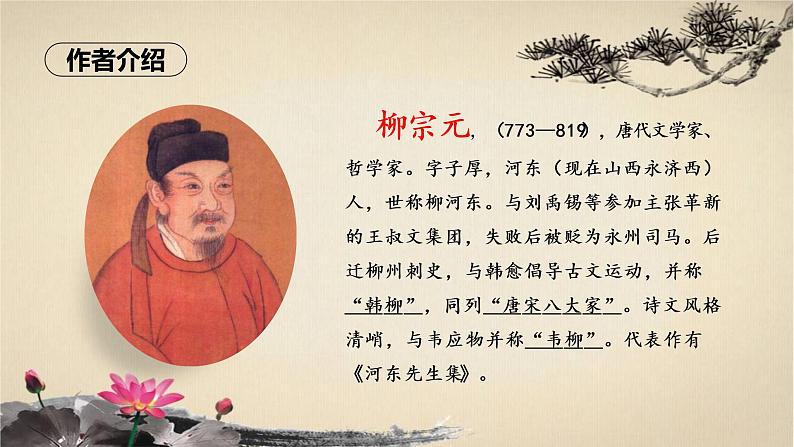 作者介绍
柳宗元，（773—819），唐代文学家、
哲学家。字子厚，河东（现在山西永济西）
人，世称柳河东。与刘禹锡等参加主张革新
的王叔文集团，失败后被贬为永州司马。后
迁柳州刺史，与韩愈倡导古文运动，并称
“韩柳”，同列“唐宋八大家”。诗文风格
清峭，与韦应物并称“韦柳”。代表作有
《河东先生集》。